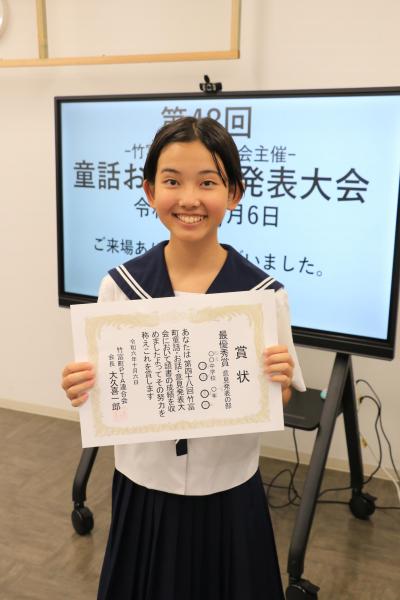 第48回
−竹富
会主催−
童話お
発表大会
令
月6日
ご来場あ
いました。
賞状
最優秀賞 意見発表の部
〇〇中学校 〇年
〇〇 〇〇
あなたは 第四十八回 竹富
町童話・お話・意見発表大
会において頭書の成績を収
めました よってその努力を
称えこれを賞します
令和六年十月六日
竹富町PTA連合会
会長 大久 善一郎